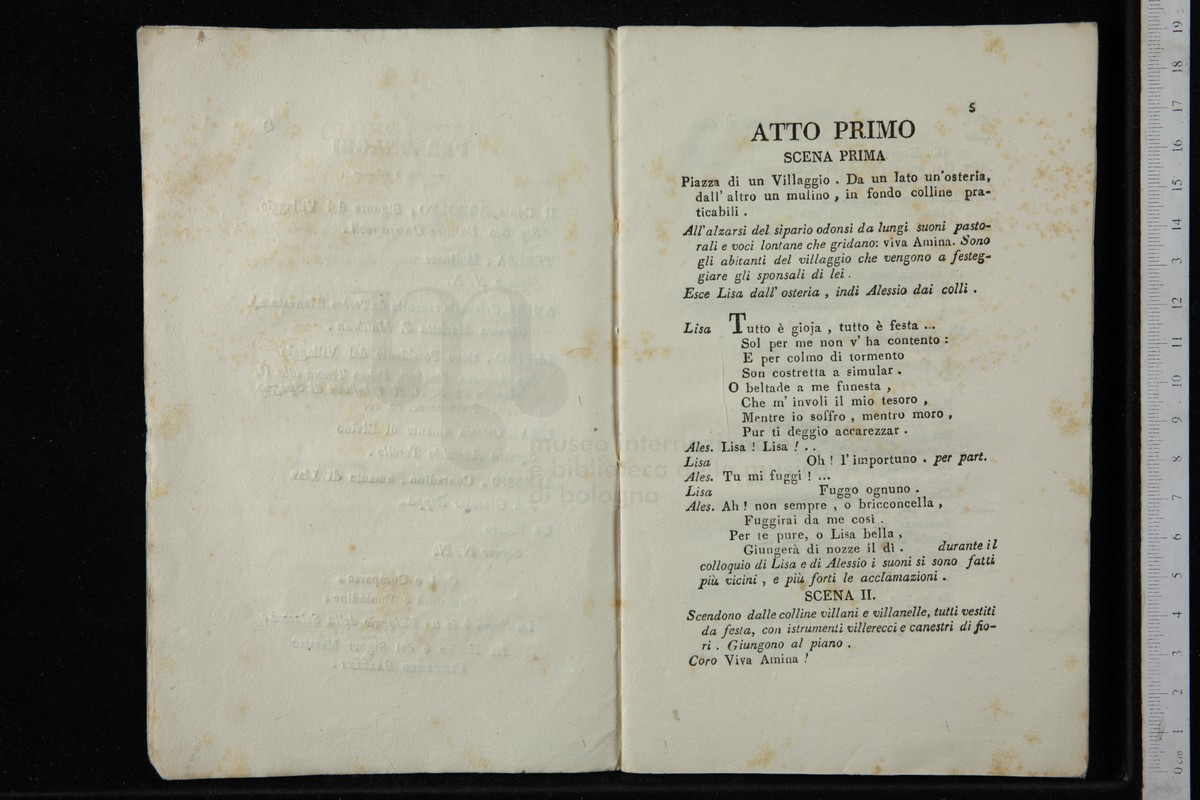 5
ATTO PRIMO
SCENA PRIMA
Piazza di un Villaggio . Da un lato un'osteria,
dall' altro un mulino , in fondo colline pra-
ticabili .
All'alzarsi del sipario odonsi da lungi suoni pasto-
rali e voci lontane che gridano: viva Amina. Sono
gli abitanti del villaggio che vengono a festeg-
giare gli sponsali di lei .
Esce Lisa dall' osteria , indi Alessio dai colli .
Lisa Tutto è gioja , tutto è festa ...
Sol per me non v' ha contento :
E per colmo di tormento
Son costretta a simular .
O beltade a me funesta ,
Che m' involi il mio tesoro ,
Mentre io soffro , mentro moro ,
Pur ti deggio accarezzar .
Ales. Lisa ! Lisa ! . .
Lisa Oh ! l' importuno . per part.
Ales. Tu mi fuggi ! ...
Lisa Fuggo ognuno .
Ales. Ah ! non sempre , o bricconcella ,
Fuggirai da me così .
Per te pure, o Lisa bella ,
Giungerà di nozze il dì . durante il
colloquio di Lisa e di Alessio i suoni si sono fatti
più vicini , e più forti le acclamazioni .
SCENA II.
Scendono dalle colline villani e villanelle, tutti vestiti
da festa, con istrumenti villerecci e canestri di fio-
ri . Giungono al piano .
Coro Viva Amina !
museo intern
e biblioteca della musica
di bologna